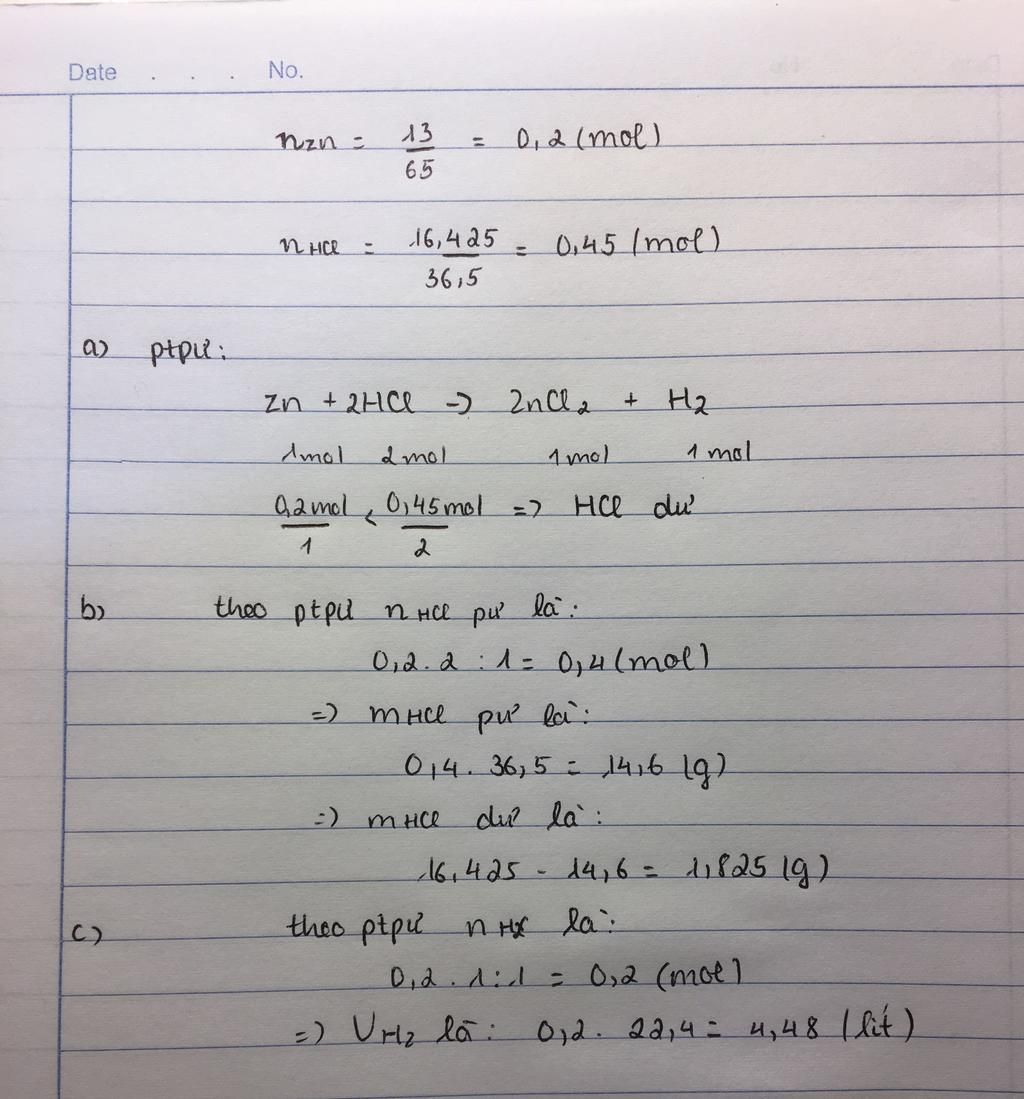 Date . . . No.
nZn = 13/65 = 0,2 (mol)
nHCl = 16,425/36,5 = 0,45 (mol)
a) ptpư:
Zn + 2HCl -> ZnCl2 + H2
1mol 2mol 1mol 1mol
0,2mol/1 < 0,45mol/2 => HCl dư
b) theo ptpư nHCl pư là:
0,2. 2 : 1 = 0,4 (mol)
=> mHCl pư là:
0,4. 36,5 = 14,6 (g)
=> mHCl dư là:
16,425 - 14,6 = 1,825 (g)
c) theo ptpư nH2 là:
0,2. 1:1 = 0,2 (mol)
=> VH2 là: 0,2. 22,4 = 4,48 (lít)